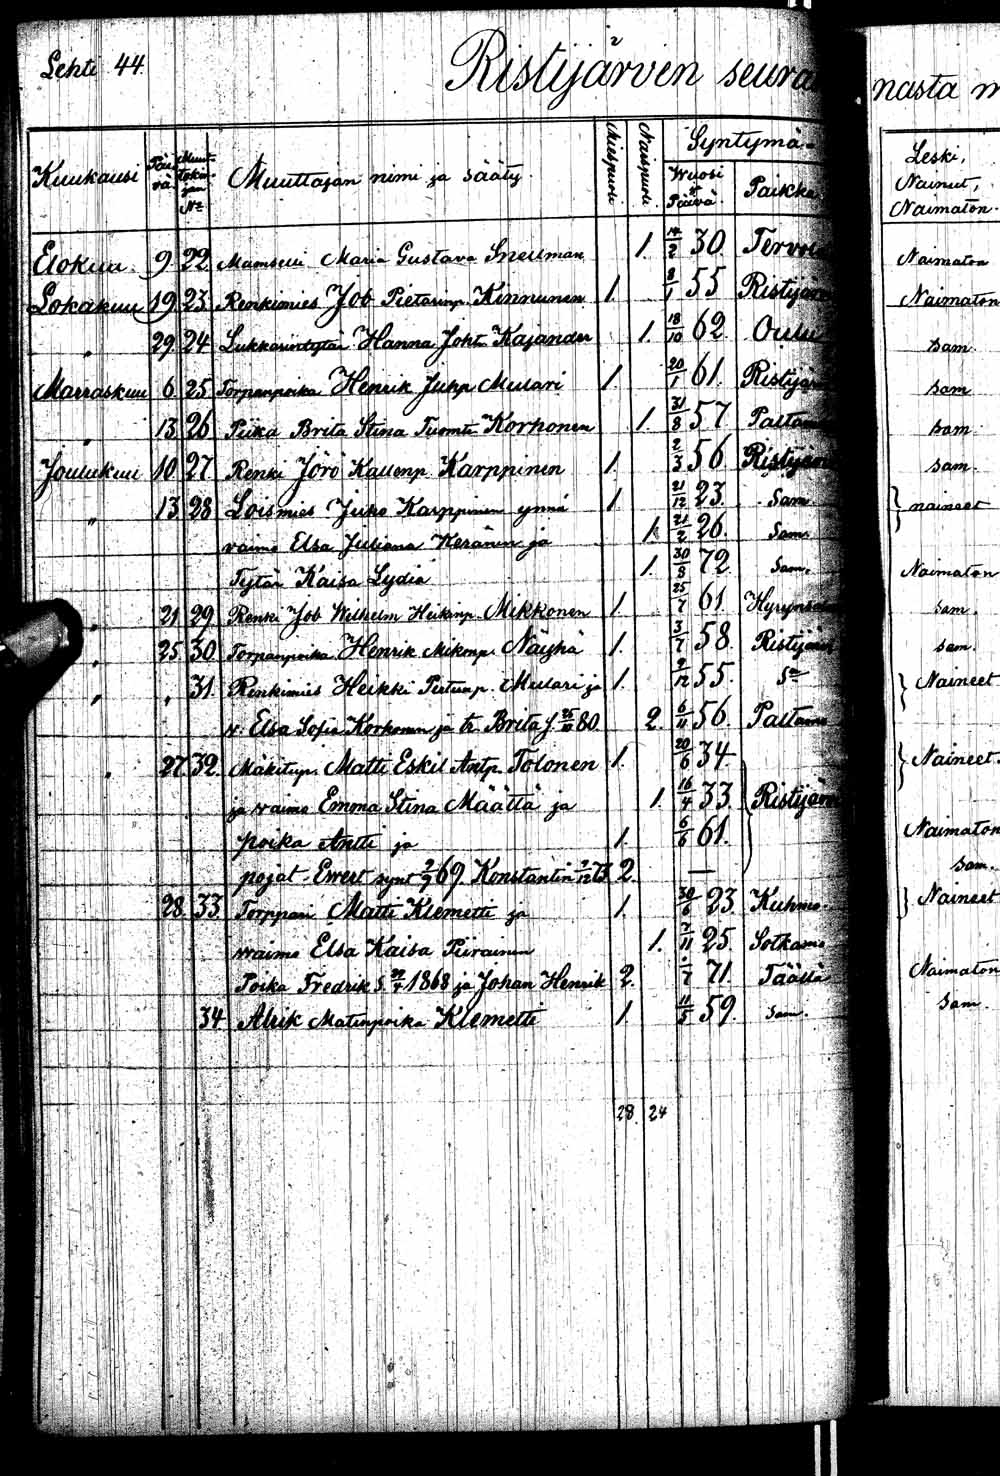 Lehti 44.
Ristijärven seura
nasta m
Kuukausi Päivä Muuttokirjan No Muuttajan nimi ja sääty Miespuoli Naispuoli. Syntymä- Wuosi & Päivä. Paikka Leski, Nainut, Naimaton.
Elokuu. 9. 22 Mamselli Maria Gustava Snellman 1. 14/2 30. Tervo Naimaton
Lokakuu 19. 23. Renkimies Job Pietarinp. Kinnunen 1. 8/1 55 Ristijär Naimaton
" 29. 24. Lukkarintytär Hanna Joht. Kajander 1. 18/10 62 Oulu sam.
Marraskuu 6. 25 Torpanpoika Henrik Juhp Mulari 1. 20/1 61. Ristijär sam
" 13. 26 Piika Brita Stina Tuomt. Korhonen 1. 31/8 57 Paltam sam.
Joulukuu 10. 27. Renki Jörö Kallenp. Karppinen 1. 2/3 56 Ristijär sam.
" 13. 28 Loismies Juho Karppinen ynnä 1 21/12 23. Sam. } naineet
vaimo Elsa Juliana Keränen ja 1. 21/2 26. Sam.
Tytär Kaisa Lydia 1. 30/8 72 Sam. Naimaton
" 21. 29. Renki Job Wilhelm Heikinp. Mikkonen 1. 25/7 61 Hyrynsal sam.
" 25. 30. Torpanpoika Henrik Mikonp. Näyhä 1. 3/7 58. Ristijär sam.
" " 31. Renkimies Heikki Pietarip. Mulari ja 1. 2/12 55. Sm } Naineet
v: Elsa Sofia Korhonen ja tr. Brita f. 25/10 80. 2. 6/11 56. Paltamo
" 27. 32. Mäkitup. Matti Eskil Antp. Tolonen 1. 20/6 34. } Naineet.
ja vaimo Emma Stina Määttä ja 1. 16/4 33. Ristijärv
poika Antti ja 1. 6/6 61. Naimaton
pojat Ewert synt 2/9 69. Konstantin 2/12 73 2. — sam.
28. 33. Torppari Matti Klemetti ja 1. 30/6 23. Kuhmo. } Naineet
waimo Elsa Kaisa Piirainen 1. 7/11 25. Sotkamo
Poika Fredrik S. 1868 ja Johan Henrik 2. 71. Täällä Naimaton
34 Alrik Matinpoika Klemetti 1. 11/5 59. sam. sam.
28. 24